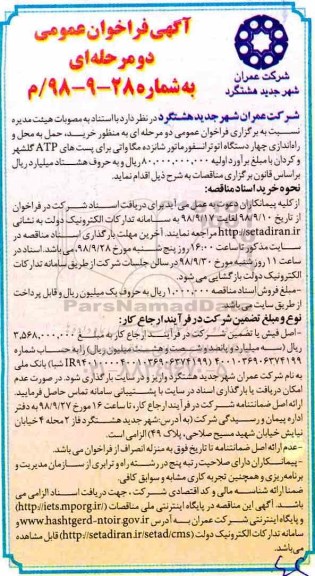 آگهی فراخوان عمومی
دو مرحله‌ای
به شماره ۲۸-۹-۹۸/م
شرکت عمران
شهر جدید هشتگرد
شرکت عمران شهر جدید هشتگرد در نظر دارد با استناد به مصوبات هیئت مدیره
نسبت به برگزاری فراخوان عمومی دو مرحله ای به منظور خرید، حمل به محل و
راه‌اندازی چهار دستگاه اتوترانسفورماتور شانزده مگاواتی برای پست های ATP گلشهر
و کردان با مبلغ برآورد اولیه ۸۰,۰۰۰,۰۰۰,۰۰۰ ریال و به حروف هشتاد میلیارد ریال
براساس قانون برگزاری مناقصات به شرح ذیل اقدام نماید.
نحوه خرید اسناد مناقصه:
از کلیه پیمانکاران دعوت به عمل می آید برای دریافت اسناد شرکت در فراخوان
از تاریخ ۹۸/۹/۱۰ لغایت ۹۸/۹/۱۷ به سامانه تدارکات الکترونیک دولت به نشانی
http://setadiran.ir مراجعه نمایند. آخرین مهلت بارگذاری اسناد مناقصه در
سایت مذکور تا ساعت ۱۶:۰۰ روز پنج شنبه مورخ ۹۸/۹/۲۸ می باشد. اسناد در
ساعت ۱۱ روز شنبه مورخ ۹۸/۹/۳۰ در سالن جلسات شرکت از طریق سامانه تدارکات
الکترونیک دولت بازگشایی می شود.
-مبلغ فروش اسناد مناقصه ۱,۰۰۰,۰۰۰ ریال به حروف یک میلیون ریال و قابل پرداخت
از طریق سایت می باشد.
نوع و مبلغ تضمین شرکت در فرآیند ارجاع کار:
-اصل فیش یا تضمین شرکت در فرآیند ارجاع کار به مبلغ ۳,۵۶۸,۰۰۰,۰۰۰
ریال (سه میلیارد و پانصد و شصت و هشت میلیون ریال) را به حساب شماره
۴۰۰۱۰۳۶۹۰۶۳۷۴۱۹۹ (شبا) بانک ملی
به نام شرکت عمران شهر جدید هشتگرد واریز و در سایت بارگذاری شود. در صورت عدم
امکان دریافت یا بارگذاری اسناد در سایت با پشتیبانی سامانه تماس حاصل فرمایید.
ارائه اصل ضمانتنامه شرکت در فرآیند ارجاع کار، تا ساعت ۱۶ مورخ ۹۸/۹/۲۷ به دفتر
اداره پیمان و رسیدگی شرکت (به آدرس: شهر جدید هشتگرد فاز ۲ محله ۴ خیابان
نیایش خیابان شهید مسیح صلاحی، پلاک ۴۹) الزامی است.
-عدم ارائه اصل ضمانتنامه تا تاریخ فوق به منزله انصراف از فراخوان می باشد.
-پیمانکاران دارای صلاحیت رتبه پنج در رشته راه و ترابری از سازمان مدیریت و
برنامه‌ریزی و همچنین تجربه کاری مشابه و سوابق کافی.
ضمنا ارائه شناسه مالی و کد اقتصادی شرکت، جهت دریافت اسناد الزامی می
باشد. آگهی این مناقصه در پایگاه اینترنتی ملی مناقصات (http://iets.mporg.ir/)
و پایگاه اینترنتی شرکت عمران به آدرس www.hashtgerd-ntoir.gov.ir و
سامانه تدارکات الکترونیک دولت (http://setadiran.ir/setad/cms) قابل مشاهده
می‌باشد.